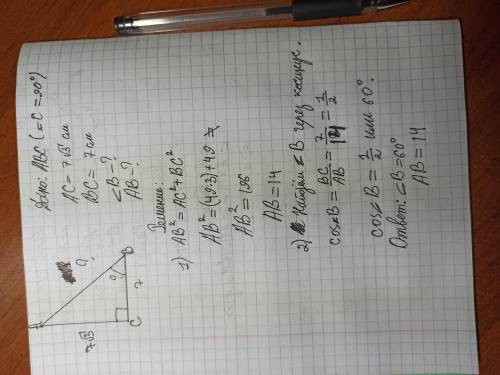 Дано: ABC (∠C = 90°)
AC = 7√3 см
BC = 7 см
∠B - ?
AB - ?
?
?
7√3
7
B
C
Решение:
1) AB² = AC² + BC²
AB² = (49·3) + 49
AB² = 196
AB = 14
2) Найдём ∠B через косинус.
cos∠B = BC/AB = 7/14 = 1/2
cos∠B = 1/2 или 60°.
Ответ: ∠B = 60°
AB = 14